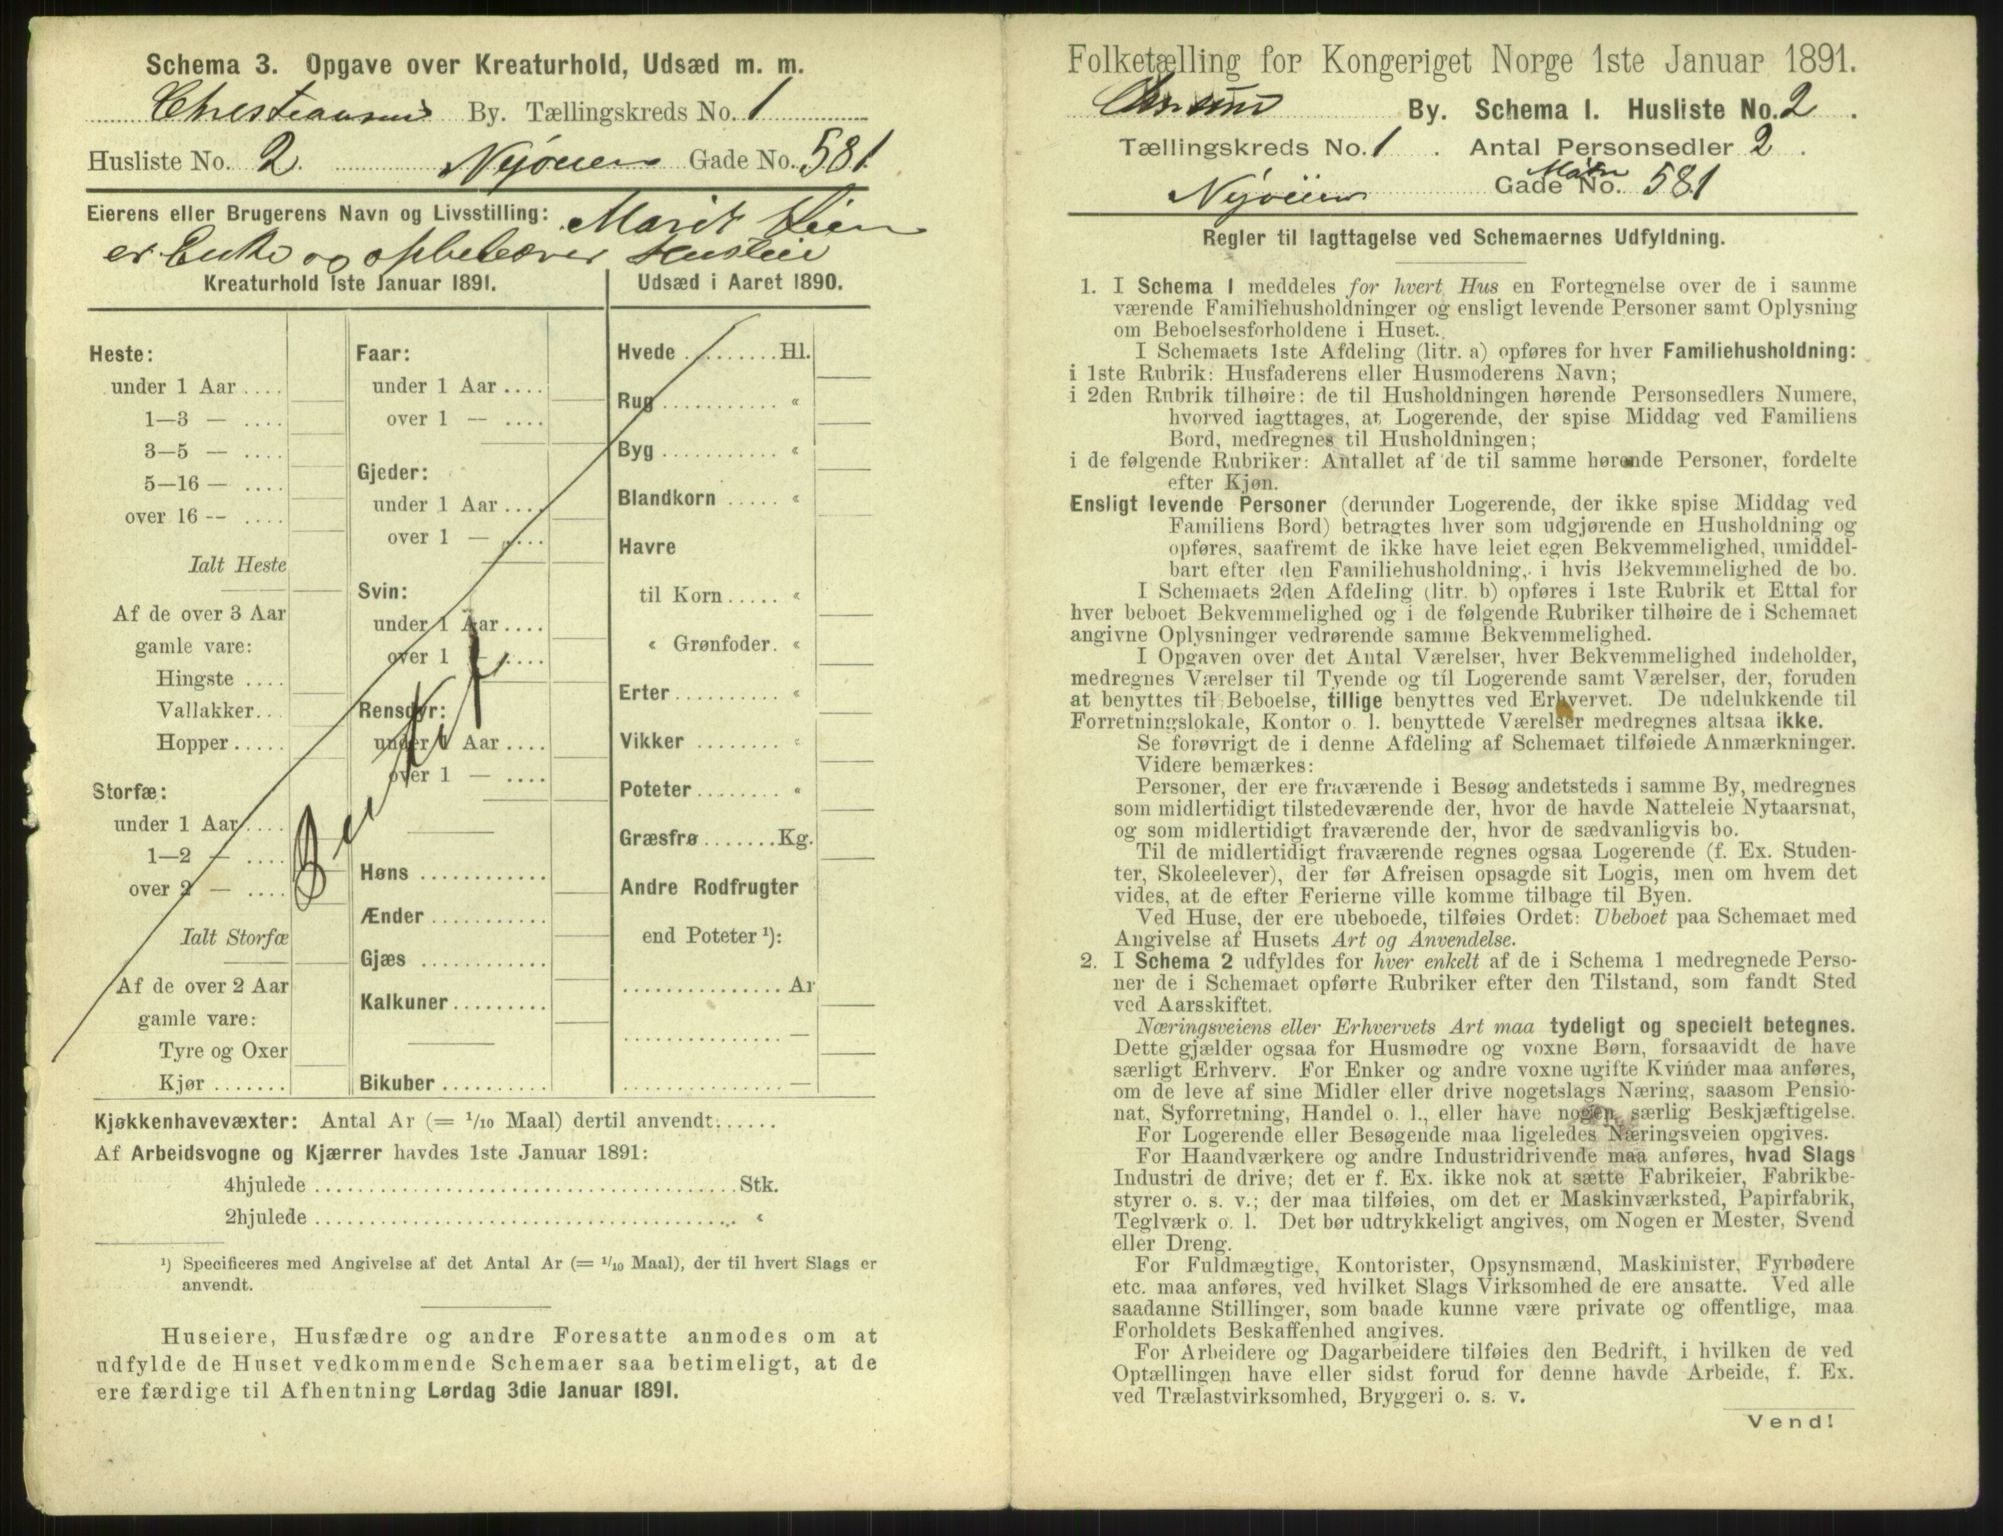 Schema 3. Opgave over Kreaturhold, Udsæd m. m.
Christiansund By. Tællingskreds No. 1
Husliste No. 2. Nyveien Gade No. 581
Eierens eller Brugerens Navn og Livsstilling: Marit Lien
er Enke og oppebærer Husleie
Kreaturhold 1ste Januar 1891.
Heste:
under 1 Aar ....
1—3 — ....
3—5 — ....
5—16 — ....
over 16 -- ....
Ialt Heste
Af de over 3 Aar
gamle vare:
Hingste ....
Vallakker...
Hopper .....
Storfæ:
under 1 Aar ....
1—2 — ....
over 2 — ....
Ialt Storfæ
Af de over 2 Aar
gamle vare:
Tyre og Oxer
Kjør .......
Faar:
under 1 Aar ....
over 1 — ....
Gjeder:
under 1 Aar ....
over 1 — ....
Svin:
under 1 Aar ....
over 1 — ....
Rensdyr:
under 1 Aar ....
over 1 — ....
Høns ............
Ænder ...........
Gjæs ............
Kalkuner .........
Bikuber ..........
Udsæd i Aaret 1890.
Hvede ......... Hl.
Rug ........... «
Byg ........... «
Blandkorn ..... «
Havre
til Korn ..... «
« Grønfoder. «
Erter .......... «
Vikker ......... «
Poteter ........ «
Græsfrø ....... Kg.
Andre Rodfrugter
end Poteter ¹):
............... Ar
............... —
............... —
Kjøkkenhavevæxter: Antal Ar (= 1/10 Maal) dertil anvendt......
Af Arbeidsvogne og Kjærrer havdes 1ste Januar 1891:
4hjulede ........................................ Stk.
2hjulede ........................................ «
¹) Specificeres med Angivelse af det Antal Ar (= 1/10 Maal), der til hvert Slags er
anvendt.
Huseiere, Husfædre og andre Foresatte anmodes om at
udfylde de Huset vedkommende Schemaer saa betimeligt, at de
ere færdige til Afhentning Lørdag 3die Januar 1891.
Folketælling for Kongeriget Norge 1ste Januar 1891.
By. Schema I. Husliste No. 2.
Tællingskreds No. 1. Antal Personsedler 2.
Nyveien Gade No. 581
Regler til Iagttagelse ved Schemaernes Udfyldning.
1. I Schema I meddeles for hvert Hus en Fortegnelse over de i samme
værende Familiehusholdninger og ensligt levende Personer samt Oplysning
om Beboelsesforholdene i Huset.
I Schemaets 1ste Afdeling (litr. a) opføres for hver Familiehusholdning:
i 1ste Rubrik: Husfaderens eller Husmoderens Navn;
i 2den Rubrik tilhøire: de til Husholdningen hørende Personsedlers Numere,
hvorved iagttages, at Logerende, der spise Middag ved Familiens
Bord, medregnes til Husholdningen;
i de følgende Rubriker: Antallet af de til samme hørende Personer, fordelte
efter Kjøn.
Ensligt levende Personer (derunder Logerende, der ikke spise Middag ved
Familiens Bord) betragtes hver som udgjørende en Husholdning og
opføres, saafremt de ikke have leiet egen Bekvemmelighed, umiddel-
bart efter den Familiehusholdning, i hvis Bekvemmelighed de bo.
I Schemaets 2den Afdeling (litr. b) opføres i 1ste Rubrik et Ettal for
hver beboet Bekvemmelighed og i de følgende Rubriker tilhøire de i Schemaet
angivne Oplysninger vedrørende samme Bekvemmelighed.
I Opgaven over det Antal Værelser, hver Bekvemmelighed indeholder,
medregnes Værelser til Tyende og til Logerende samt Værelser, der, foruden
at benyttes til Beboelse, tillige benyttes ved Erhvervet. De udelukkende til
Forretningslokale, Kontor o. l. benyttede Værelser medregnes altsaa ikke.
Se forøvrigt de i denne Afdeling af Schemaet tilføiede Anmærkninger.
Videre bemærkes:
Personer, der ere fraværende i Besøg andetsteds i samme By, medregnes
som midlertidigt tilstedeværende der, hvor de havde Natteleie Nytaarsnat,
og som midlertidigt fraværende der, hvor de sædvanligvis bo.
Til de midlertidigt fraværende regnes ogsaa Logerende (f. Ex. Studen-
ter, Skoleelever), der før Afreisen opsagde sit Logis, men om hvem det
vides, at de efter Ferierne ville komme tilbage til Byen.
Ved Huse, der ere ubeboede, tilføies Ordet: Ubeboet paa Schemaet med
Angivelse af Husets Art og Anvendelse.
2. I Schema 2 udfyldes for hver enkelt af de i Schema 1 medregnede Perso-
ner de i Schemaet opførte Rubriker efter den Tilstand, som fandt Sted
ved Aarsskiftet.
Næringsveiens eller Erhvervets Art maa tydeligt og specielt betegnes.
Dette gjælder ogsaa for Husmødre og voxne Børn, forsaavidt de have
særligt Erhverv. For Enker og andre voxne ugifte Kvinder maa anføres,
om de leve af sine Midler eller drive nogetslags Næring, saasom Pensio-
nat, Syforretning, Handel o. l., eller have nogen særlig Beskjæftigelse.
For Logerende eller Besøgende maa ligeledes Næringsveien opgives.
For Haandværkere og andre Industridrivende maa anføres, hvad Slags
Industri de drive; det er f. Ex. ikke nok at sætte Fabrikeier, Fabrikbe-
styrer o. s. v.; der maa tilføies, om det er Maskinværksted, Papirfabrik,
Teglværk o. l. Det bør udtrykkeligt angives, om Nogen er Mester, Svend
eller Dreng.
For Fuldmægtige, Kontorister, Opsynsmænd, Maskinister, Fyrbødere
etc. maa anføres, ved hvilket Slags Virksomhed de ere ansatte. Ved alle
saadanne Stillinger, som baade kunne være private og offentlige, maa
Forholdets Beskaffenhed angives.
For Arbeidere og Dagarbeidere tilføies den Bedrift, i hvilken de ved
Optællingen have eller sidst forud for denne havde Arbeide, f. Ex.
ved Trælastvirksomhed, Bryggeri o. s. v.
Vend!